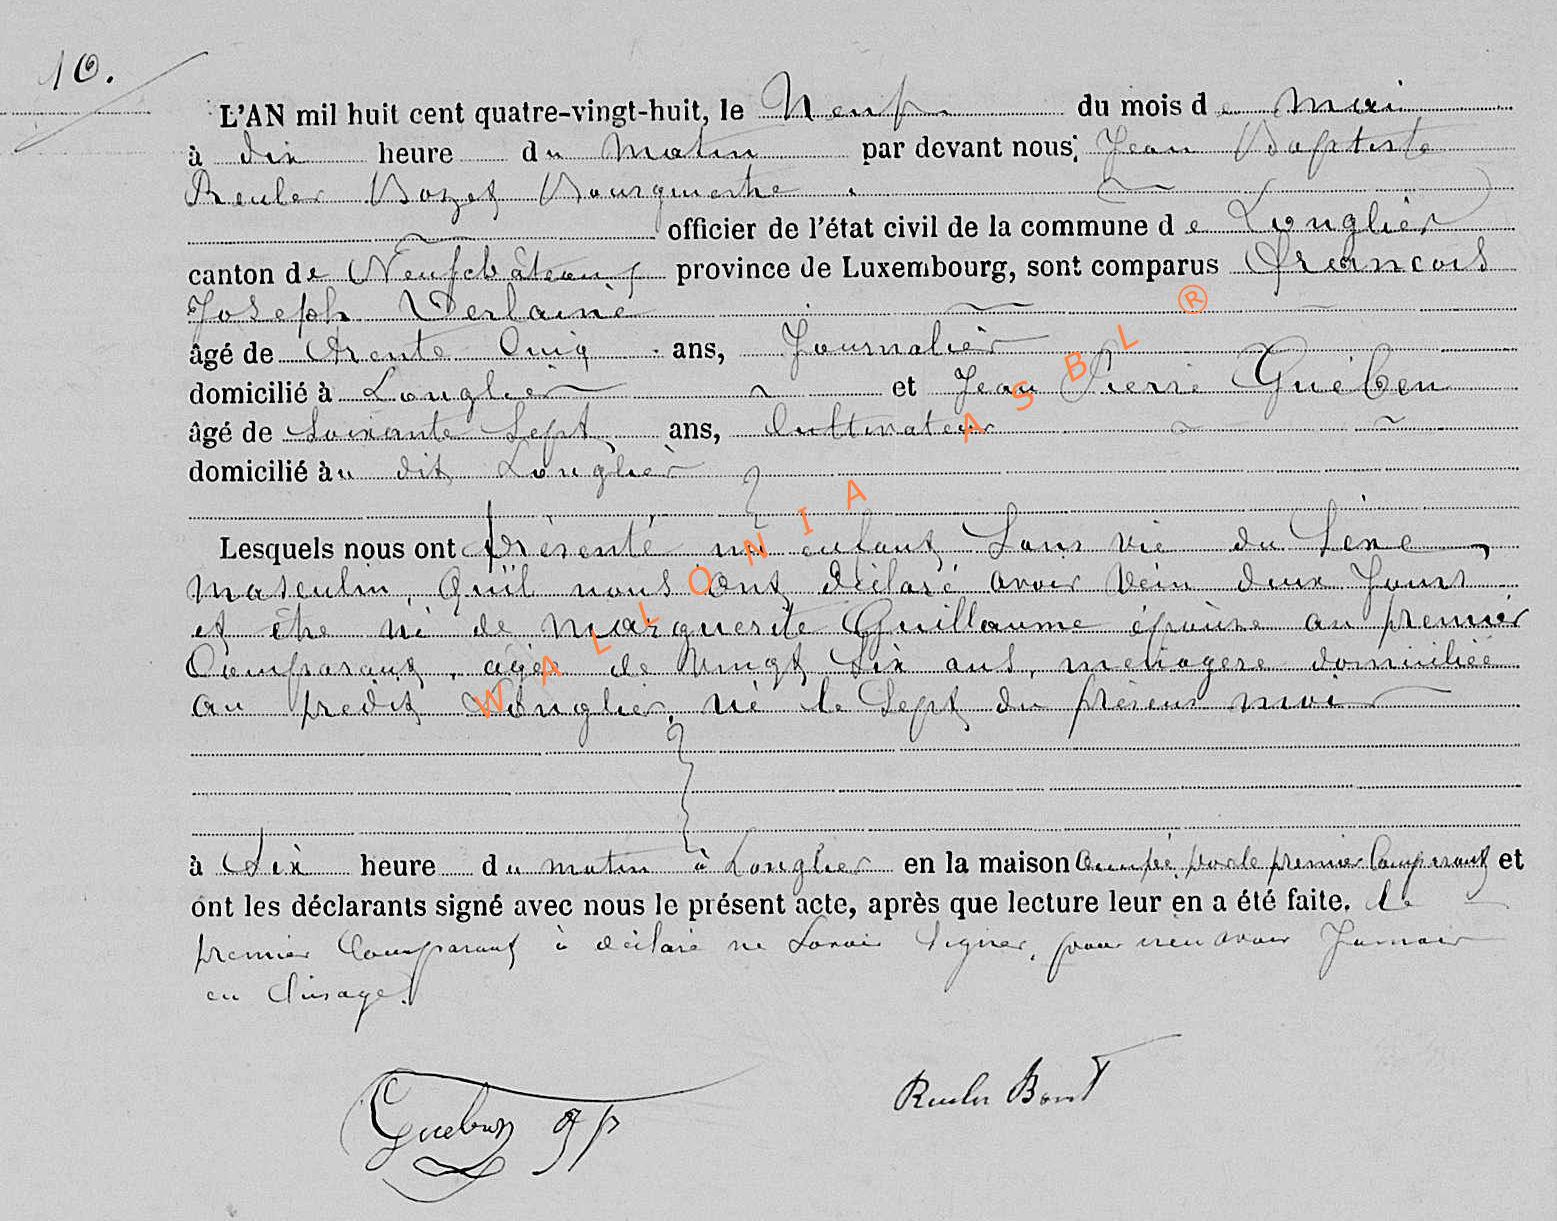 10.
L'AN mil huit cent quatre-vingt-huit, le Neuf du mois de Mai
à dix heure du Matin par devant nous; Jean Baptiste
Reuler Bozet Bourgmestre
officier de l'état civil de la commune de Longlier
canton de Neufchâteau province de Luxembourg, sont comparus Francois
Joseph Verlaine
âgé de trente Cinq ans, Journalier
domicilié à Longlier et Jean Pierre Guében
âgé de Soixante Sept ans, Cultivateur
domicilié au dit Longlier
Lesquels nous ont présenté un enfant Sans vie du Sexe
masculin, Qu'il nous ont déclaré avoir vécu deux Jours
et être né de Marguerite Guillaume épouse au premier
Comparant, agée de Vingt Six ans, menagère domiciliée
au prédit Longlier, né le Sept du présent moi
à Six heure du matin à Longlier en la maison occupée par le premier Comparant et
ont les déclarants signé avec nous le présent acte, après que lecture leur en a été faite. le
premier Comparant à déclaré ne Savoir Signer, pour n'en avoir Jamais
eu l'usage.
Gueben JP Reuler Bozet
WALLONIA ASBL ®